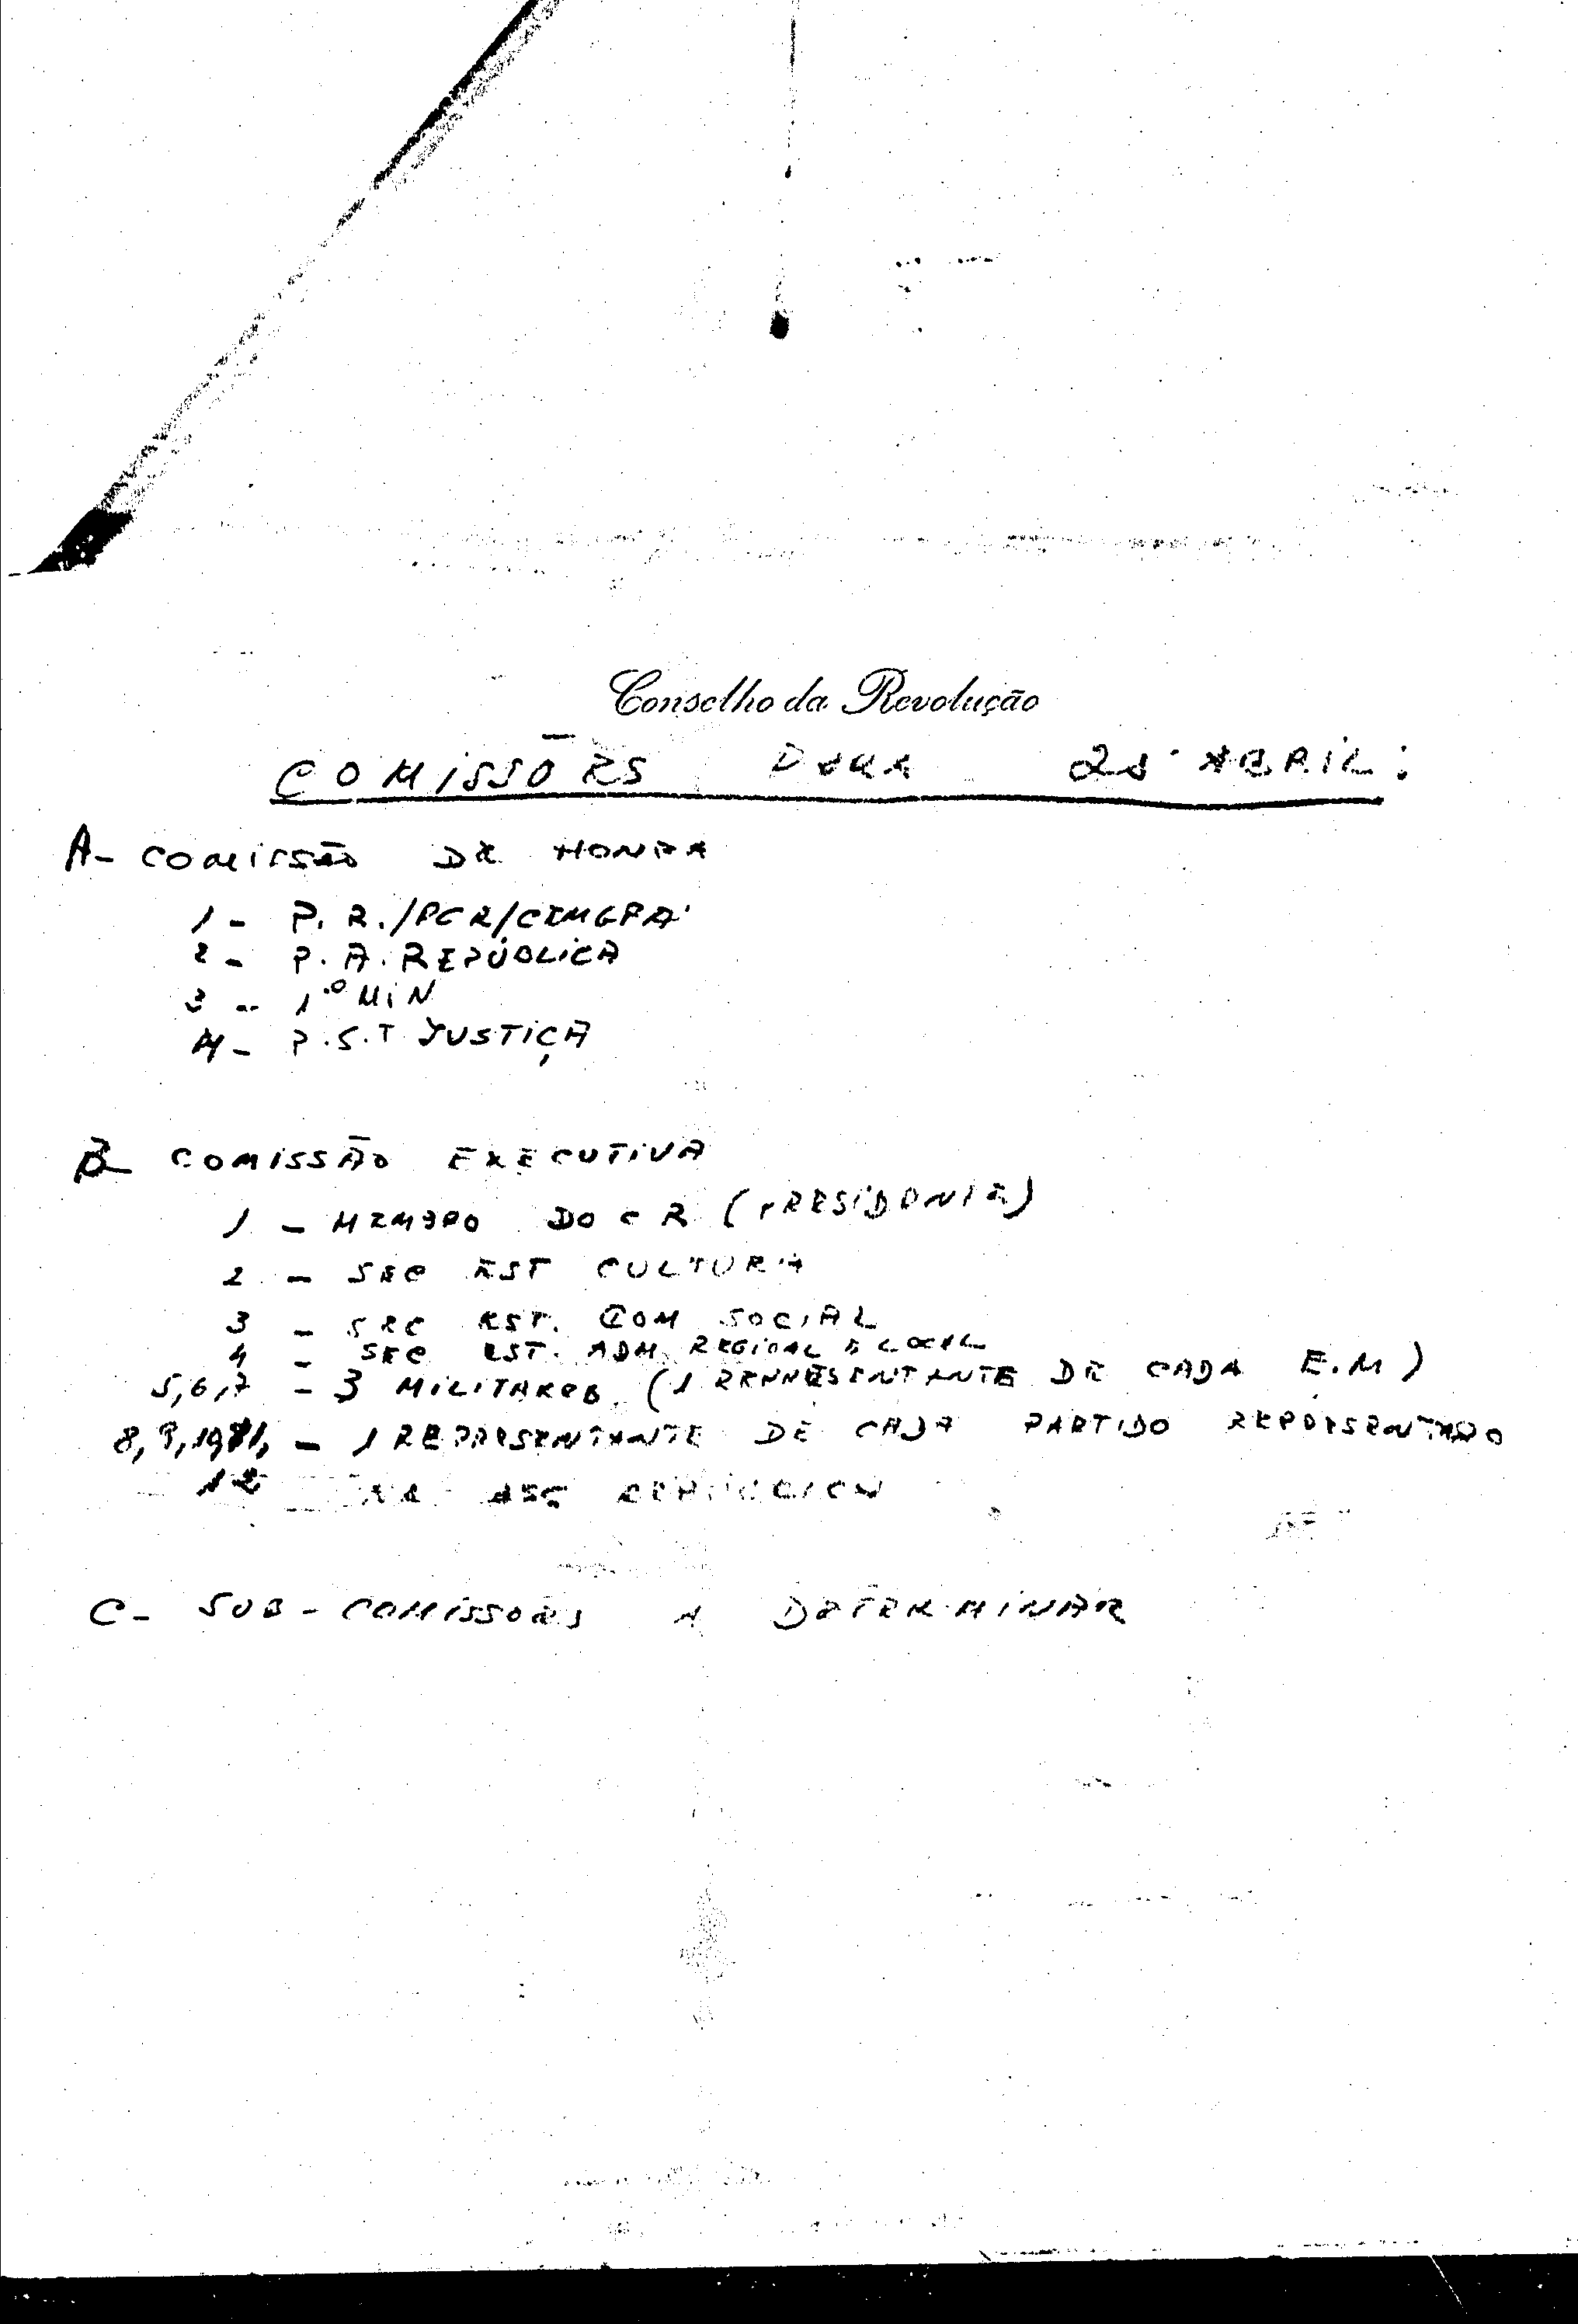 Conselho da Revolução
COMISSÕES PARA 25 ABRIL:
A- COMISSÃO DE HONRA
1 - P.R./PCR/CEMGFA
2 - P.A. REPÚBLICA
3 - 1.º MIN
4 - P.S.T JUSTIÇA
B- COMISSÃO EXECUTIVA
1 - MEMBRO DO CR (PRESIDENTE)
2 - SEC EST CULTURA
3 - SEC EST. COM SOCIAL
4 - SEC EST. ADM. REGIONAL E LOCAL
5,6,7 - 3 MILITARES (1 REPRESENTANTE DE CADA E.M)
8,9,10,11, - 1 REPRESENTANTE DE CADA PARTIDO REPRESENTADO
12 NA ASS REPUBLICA
C- SUB-COMISSÕES A DETERMINAR